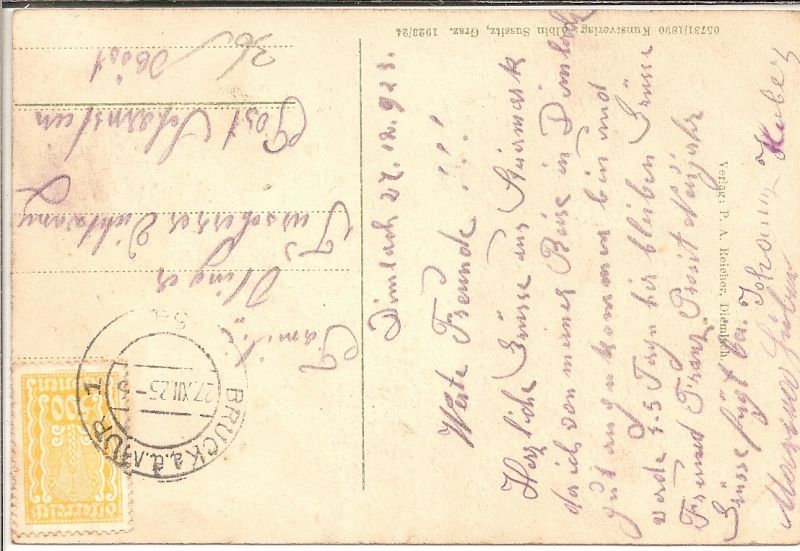 05731/1890 Kunstverlag Albin Sussitz, Graz. 1923/24
Verlag: P. A. Reicher, Diemlach
Dimlach 27.12.923
Werte Freunde!!!
Herzliche Grüsse aus Steiermark
da ich von meiner Reise in Dimlach
gut angekommen bin und
werde 3-5 Tage hir bleiben Grüsse
Freund Franz Prosit Neujahr
Grüsse fügt bei Johann Huber
Familie
Post Scharnstein
BRUCK a.d. MUR 1
27.XII.23
300
Kronen
Österreich